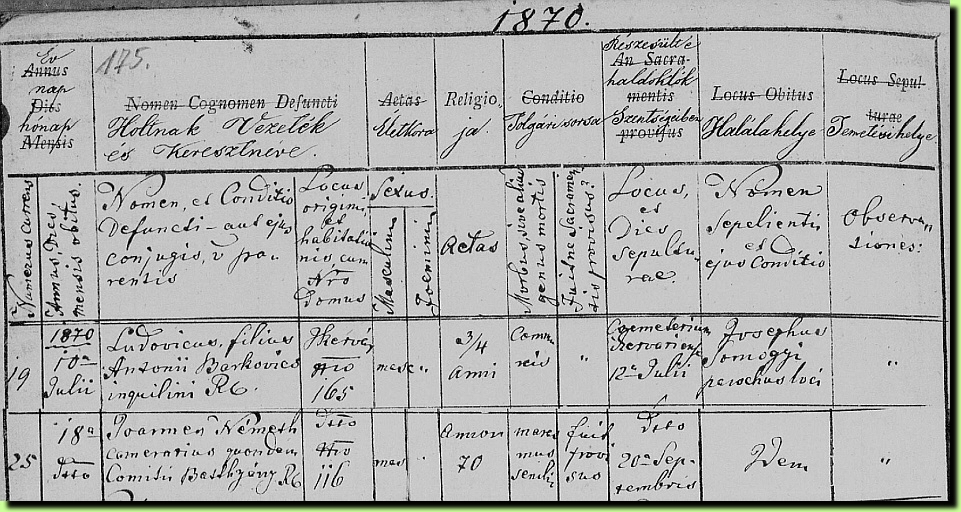 1870.
175.
Év
Annus
nap
Dies
honap
Mensis
Nomen Cognomen Defuncti
Holtnak Vezeték
és Keresztneve.
Aetas
Életkora
Religio,
ja.
Conditio
Polgári sorsa
Részesült-é
An Sacra-
haldoklók
mentis
Szentségeiben
provisus
Locus Obitus
Halála helye
Locus Sepul-
turae
Temetési helye
Numerus currens
Annus, Dies,
mensis obitus.
Nomen, et Conditio
Defuncti - aut ejus
conjugis, v pa-
rentis
Locus
originis
et
habitatio
nis cum
Nro
Domus
Sexus.
Masculinus
Foemininus
Aetas
Morbus, sive aliud
genus mortis
Fuitne Sacramen
tis provisus?
Locus,
et
Dies
sepultu-
rae.
Nomen
Sepelientis
et
ejus Conditio
Observa-
tiones:
19
1870
10a
Julii
Ludovicus, filius
Antonii Barkovics
inquilini RC.
Nro
165
masc
"
3/4
Anni
"
Coemeterium
12a Julii
Josephus
Somogyi
parochus loci
"
25
18a
Dtto
Joannes Németh
camerarius quondam
Comitis Batthyány RC
Dtto
Nro
116
mas
"
Annor
70
maras
mus
senilis
fuit
provi
sus
Dtto
20a Sep-
tembris
Idem
"